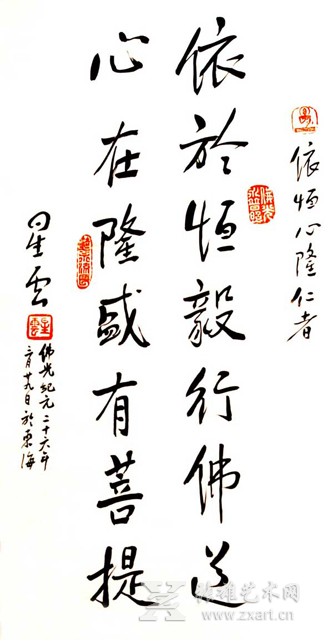 依恒心隆仁者
依於恒毅行佛道
心在隆盛有菩提
星云
佛光紀元二十六年
月九日於東海
雄艺术网
www.zxart.cn